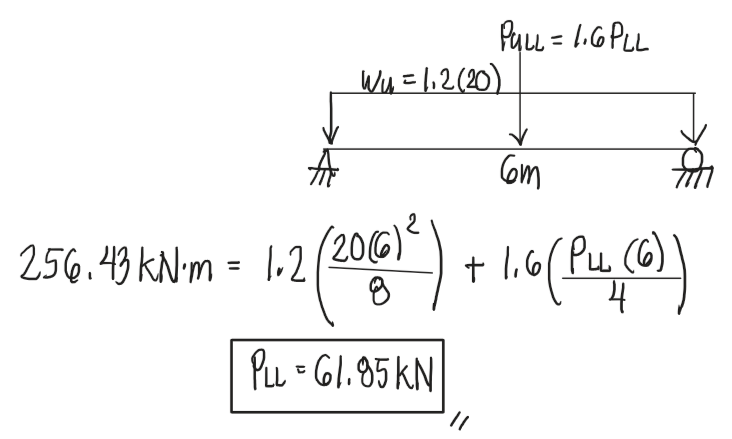 PuLL = 1.6 PLL
Wu = 1.2(20)
6m
256.43 kN·m = 1.2 (20(6)² / 8) + 1.6 (PLL (6) / 4)
PLL = 61.85 kN